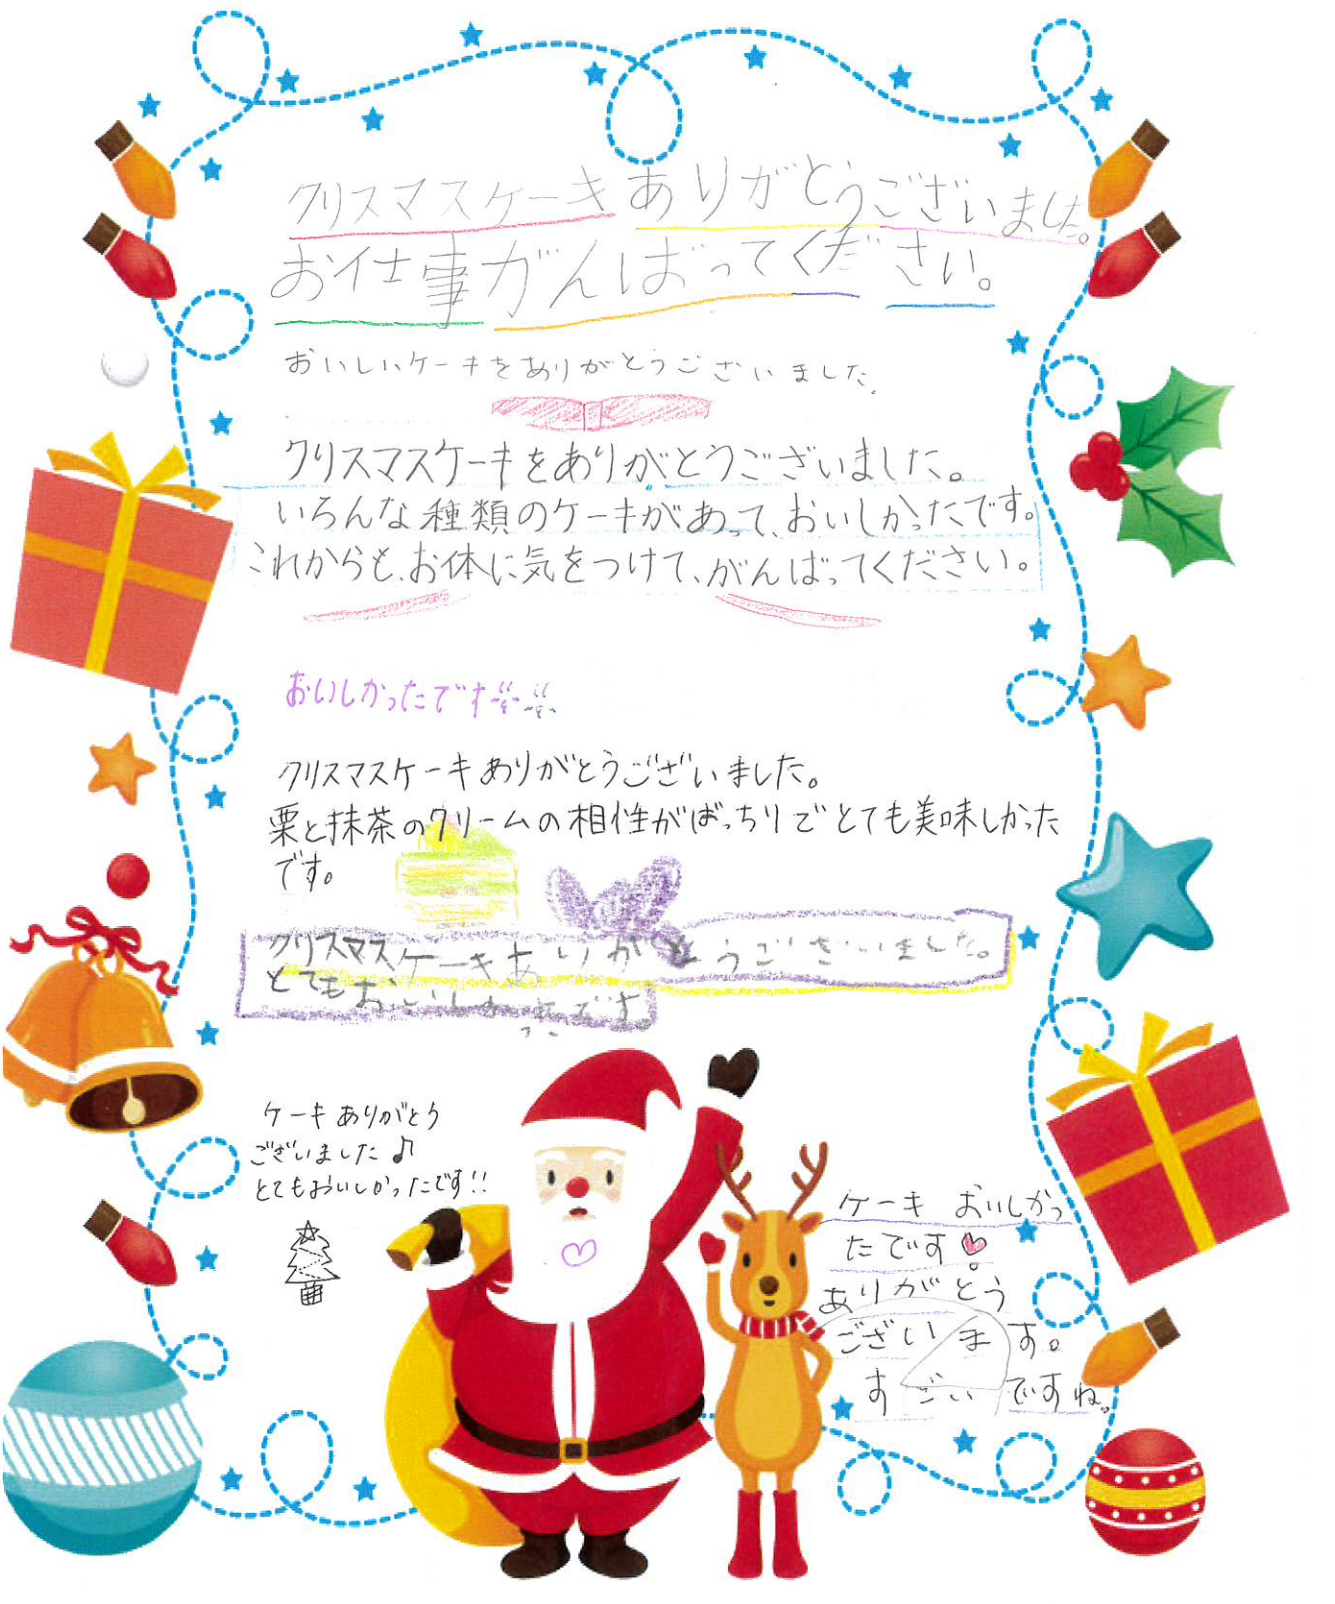 クリスマスケーキありがとうございました。
お仕事がんばってください。
おいしいケーキをありがとうございました。
クリスマスケーキをありがとうございました。
いろんな種類のケーキがあって、おいしかったです。
これからも、お体に気をつけて、がんばってください。
おいしかったです
クリスマスケーキありがとうございました。
栗と抹茶のクリームの相性がばっちりでとても美味しかった
です。
クリスマスケーキありがとうございました。
とてもおいしかったです。
ケーキありがとう
ございました♪
とてもおいしかったです!!
ケーキ おいしかっ
たです♡。
ありがとう
ございます。
すごいですね。